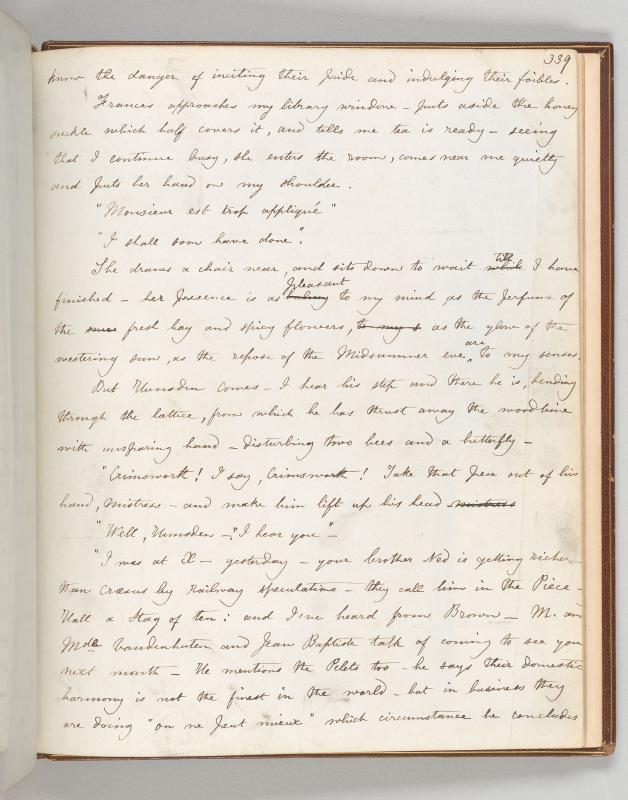 339
know the danger of inciting their pride and indulging their foibles.
Frances approaches my library window – puts aside the honey
suckle which half covers it, and tells me tea is ready – seeing
that I continue busy, she enters the room, comes near me quietly
and puts her hand on my shoulder.
"Monsieur est trop appliqué"
"I shall soon have done".
She draws a chair near, and sits down to wait while till I have
finished – her presence is as balmy pleasant to my mind as the perfume of
the fresh hay and spicy flowers, to my s as the glow of the
westering sun, as the repose of the Midsummer eve are to my senses.
But Hunsden comes – I hear his step and there he is, bending
through the lattice, from which he has thrust away the woodbine
with unsparing hand – disturbing two bees and a butterfly –
"Crimsworth! I say, Crimsworth! Take that pen out of his
hand, mistress – and make him lift up his head mistress
"Well, Hunsden –" "I hear you" –
"I was at X – yesterday – your brother Ned is getting richer
than Crœsus by railway speculations – they call him in the Piece-
Hall a stag of ten; and I've heard from Brown – M. and
Mde Vandenhuten and Jean Baptiste talk of coming to see you
next month – He mentions the Pelets too – he says their domestic
harmony is not the finest in the world – but in business they
are doing "on ne peut mieux" which circumstance he concludes